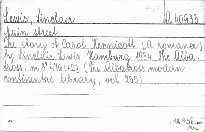 Lewis, Sinclair
A 40933
Main street.
The story of Carol Kennicott. (A romance)
by Sinclair Lewis. Hamburg 1934. The Alba-
tross. m 8° (The Albatross modern
continental library, vol. 235)